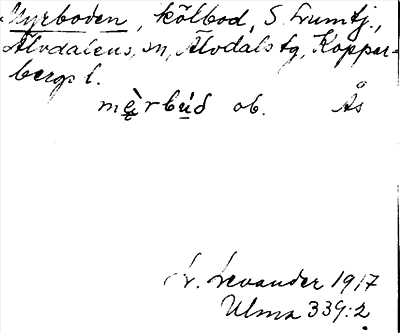 Myrboden, kölbod, S. Lumtj.,
Älvdalens sn, Älvdals tg, Koppar-
bergs l.
mèrbúd ob. Ås
L. Levander 1917
Ulma 339:2